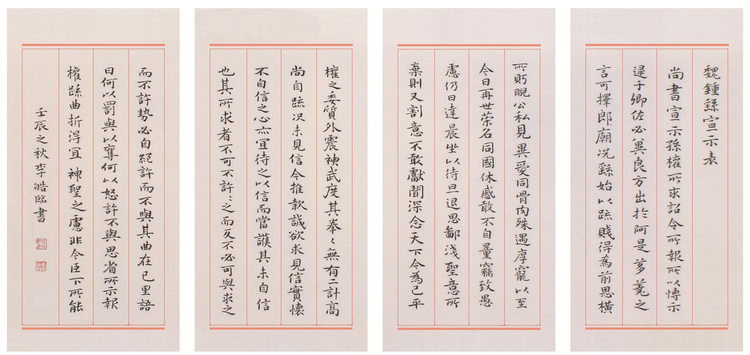 魏鍾繇宣示表
尚書宣示孫權所求詔令所報所以博示
逮于卿佐必冀良方出於阿是芻蕘之
言可擇郎廟况繇始以疏賤得為前恩橫
所眄睨公私見異愛同骨肉殊遇厚寵以至
今日再世榮名同國休慼敢不自量竊致愚
慮仍日達晨坐以待旦退思鄙淺聖意所
棄則又割意不敢獻聞深念天下今為已平
權之委質外震神武度其拳々無有二計高
尚自疏况未見信今推款誠欲求見信實懷
不自信之心亦宜待之以信而當護其未自信
也其所求者不可不許々之而反不必可與求之
而不許勢必自絕許而不與其曲在己里語
曰何以罰與以奪何以怒許不與思省所示報
權疏曲折得宜神聖之慮非今臣下所能
壬辰之秋李皓臨書